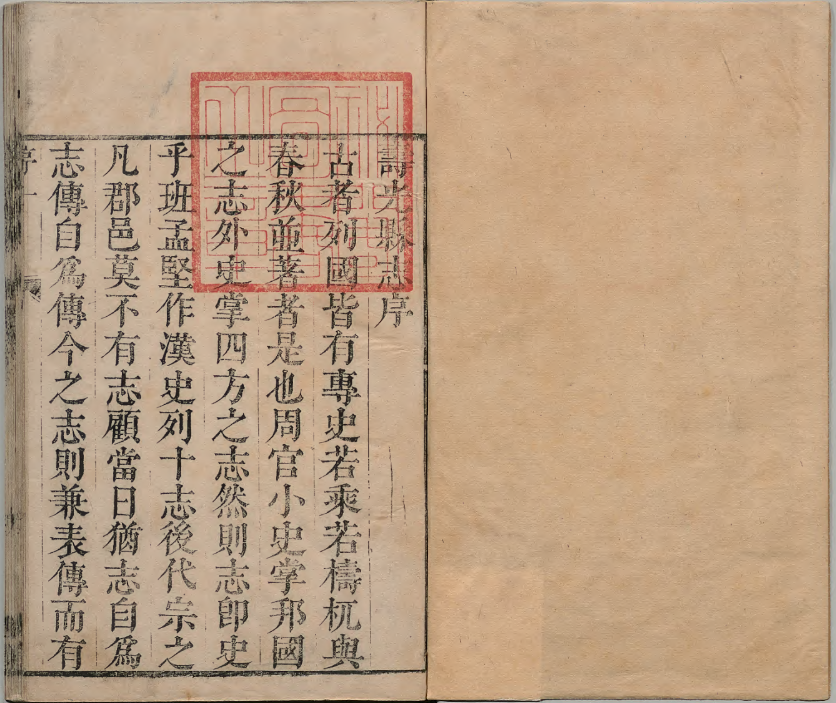 壽光縣志序
古者列國皆有專史若乘若檮杌與
春秋並著者是也周官小史掌邦國
之志外史掌四方之志然則志即史
乎班孟堅作漢史列十志後代宗之
凡郡邑莫不有志顧當日猶志自爲
志傳自爲傳今之志則兼表傳而有
序一